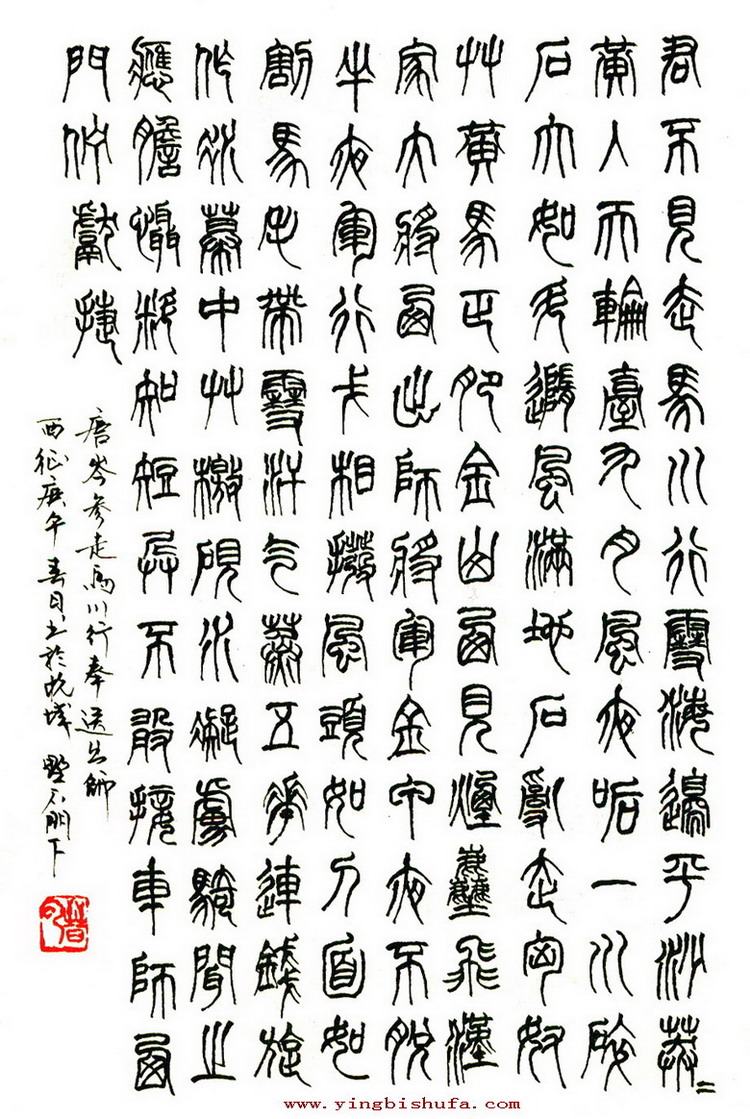 君不見走馬川行雪海邊平沙莽〻
黃入天輪臺九月風夜吼一川碎
石大如斗隨風滿地石亂走匈奴
艸黃馬正肥金山西見煙塵飛漢
家大將西出師將軍金甲夜不脫
半夜軍行戈相撥風頭如刀面如
割馬毛帶雪汗气蒸五花連錢旋
作冰幕中艸檄硯水凝虜騎聞之
應膽懾料知短兵不敢接車師西
門佇獻捷
唐岑參走馬川行奉送出師
西征庚午春日书於杭城
www.yingbishufa.com